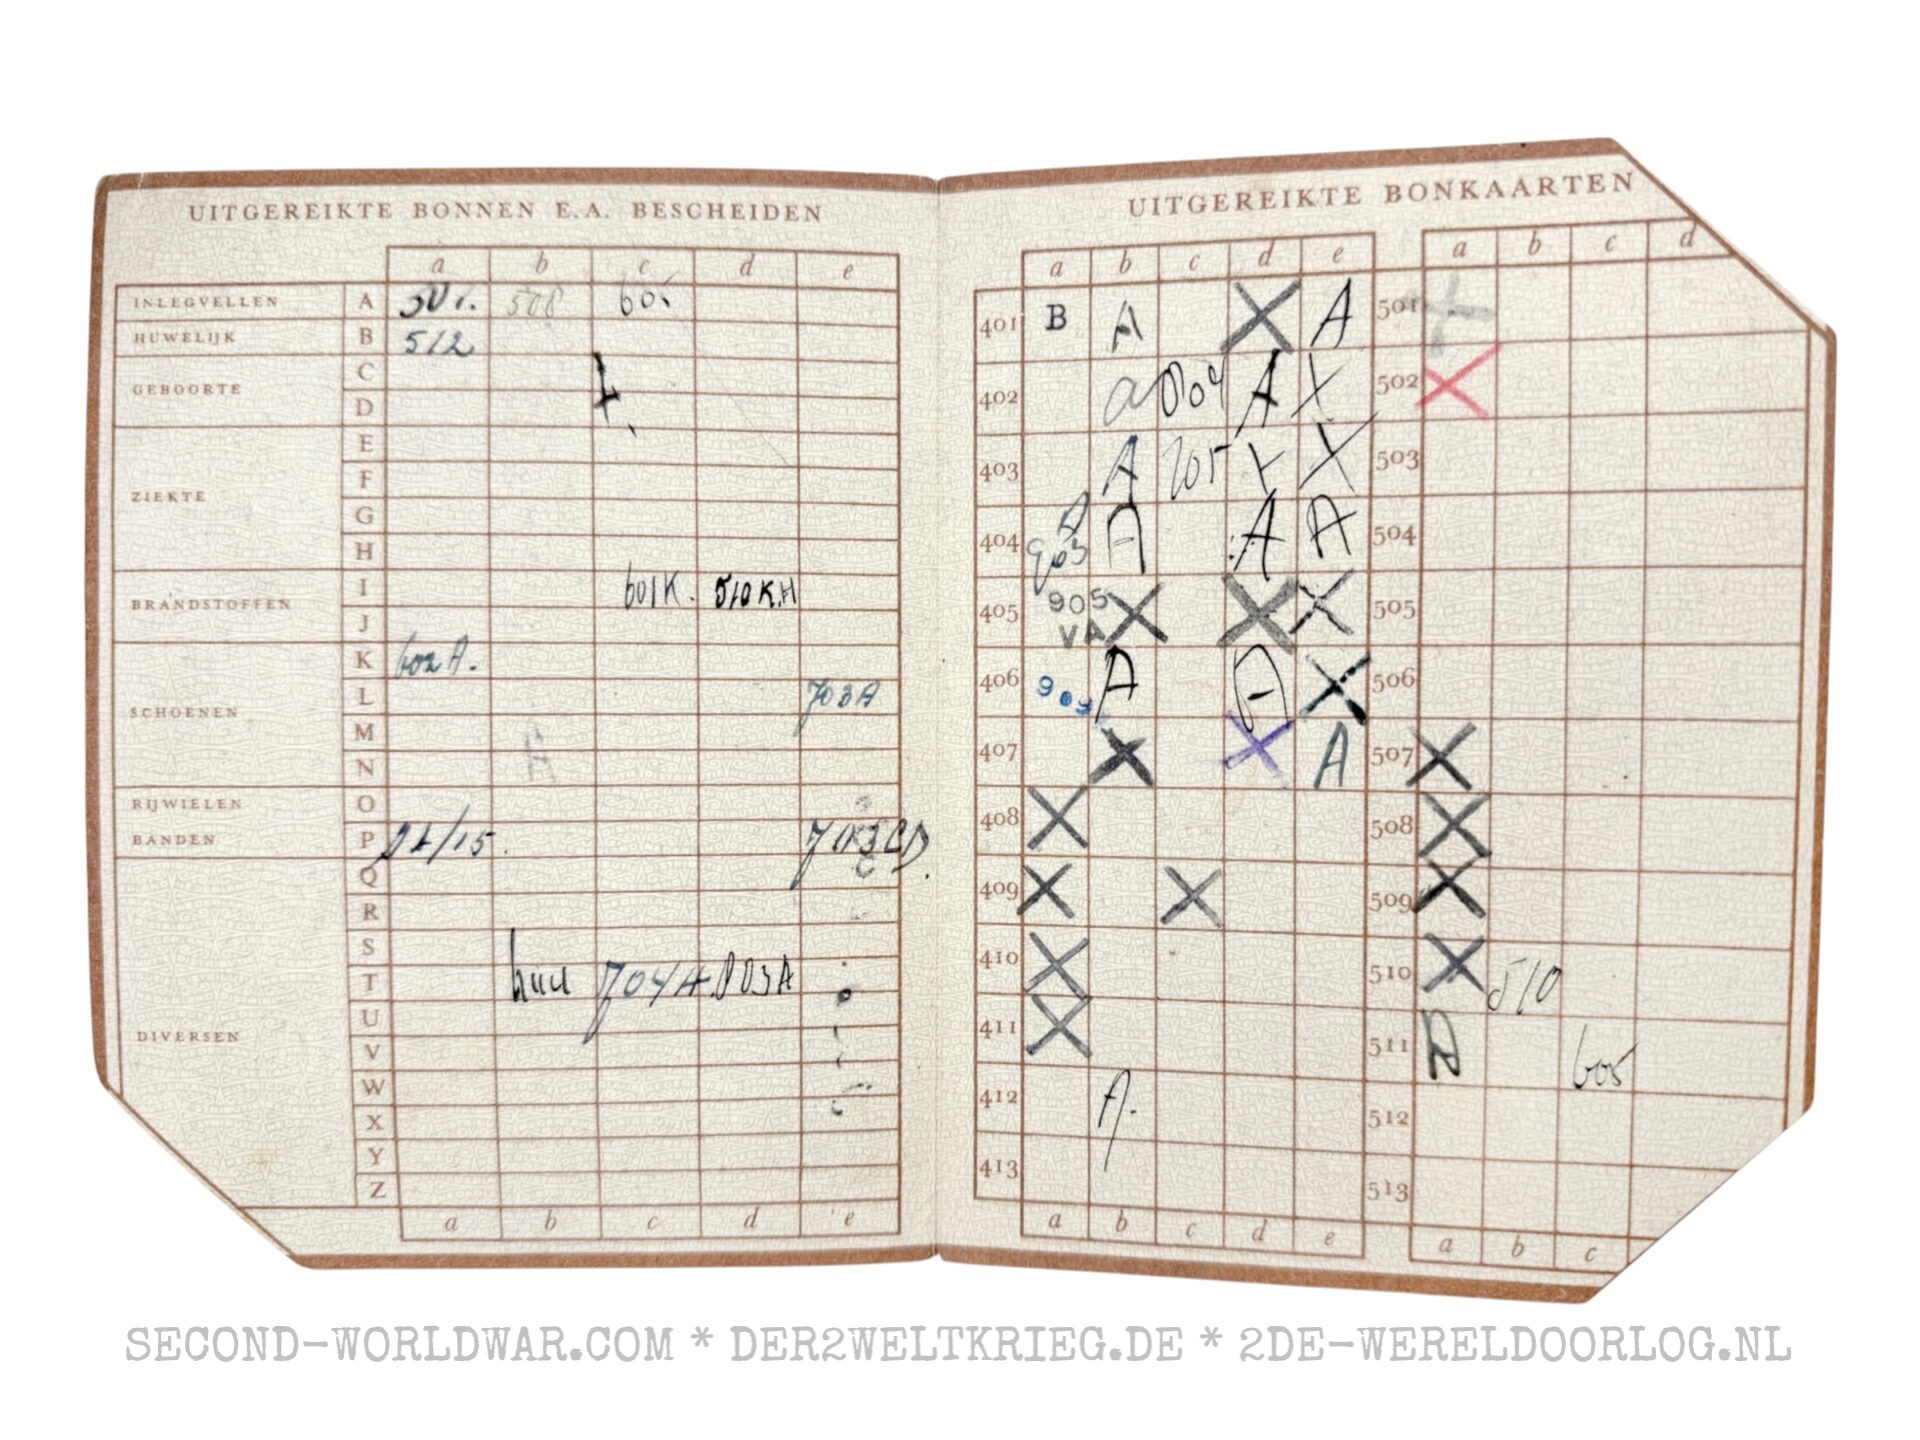 UITGEREIKTE BONNEN E.A. BESCHEIDEN
a b c d e
INLEGVELLEN A 508 605
HUWELIJK B 512
GEBOORTE C
D
E
F
ZIEKTE
G
H
I 601K. 510 K.H
BRANDSTOFFEN
J
K 602 A.
L 703A
SCHOENEN
M
N
RIJWIELEN O
BANDEN P
Q
R
S
T 704A 803A
U
DIVERSEN
V
W
X
Y
Z
a b c d e
UITGEREIKTE BONKAARTEN
a b c d e a b c d
401 B A X A 501 X
402 a 804 A X 502 X
403 A 705 X X 503
404 903 A A A 504
405 905 VA X X X 505
406 903 A A X 506
407 X X A 507 X
408 X 508 X
409 X X 509 X
410 X 510 X 510
411 X 511 605
412 A. 512
413 513
a b c d e a b c
SECOND-WORLDWAR.COM * DER2WELTKRIEG.DE * 2DE-WERELDOORLOG.NL